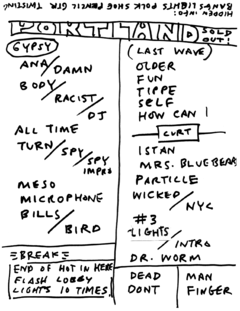 HIDDEN INFO:
BANGS LIGHTS POLK SHOE PENCIL GTR TWISTING
PORTLAND
SOLD
OUT!
GYPSY
ANA/DAMN
BODY/RACIST/DJ
ALL TIME
TURN/SPY/SPY
IMPRO
MESO
MICROPHONE
BILLS/BIRD
BREAK
END OF HOT IN HERE
FLASH LOBBY
LIGHTS 10 TIMES
(LAST WAVE)
OLDER
FUN
TIPPE
SELF
HOW CAN I
CURT
ISTAN
MRS. BLUEBEARD
PARTICLE
WICKED/NYC
#3
LIGHTS/INTRO
DR. WORM
DEAD
DONT
MAN
FINGER